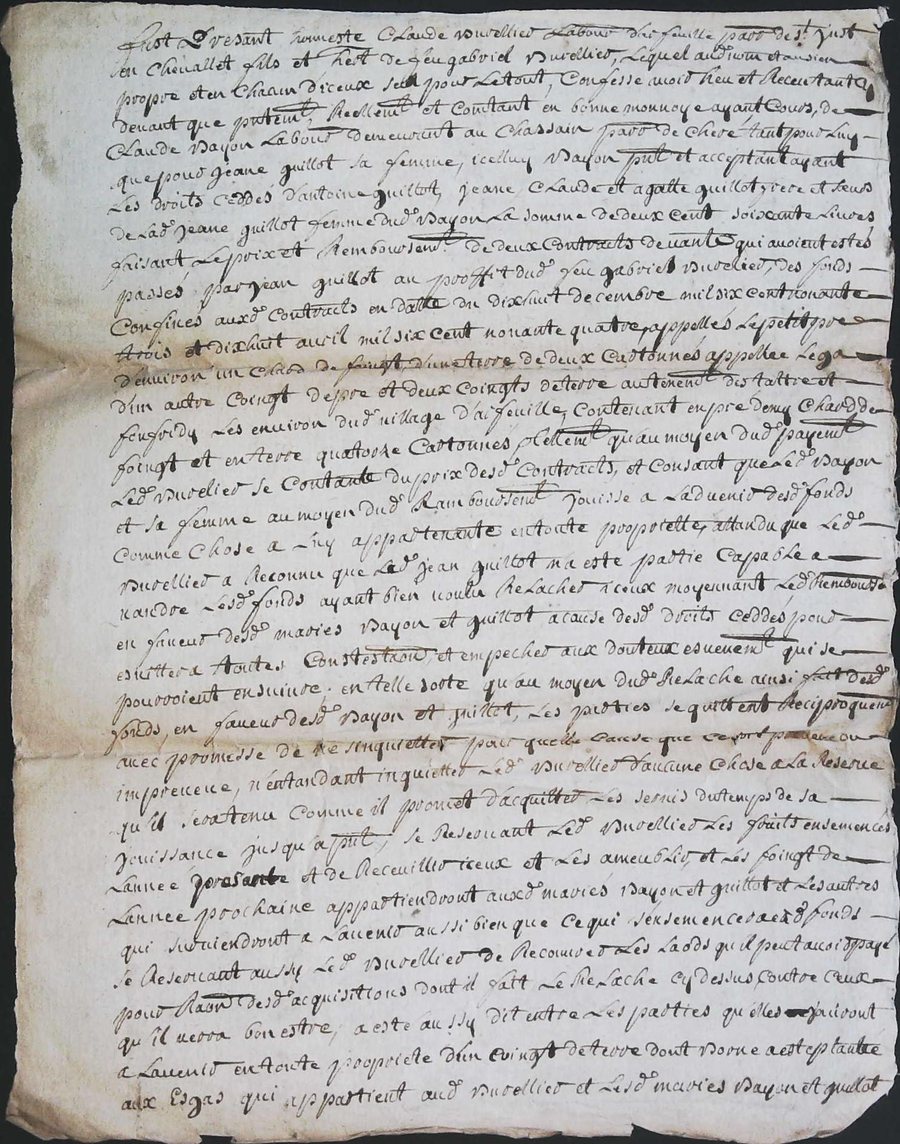 fust present honneste Claude Burellier Labour d'aifeuille parr de st just
en Cheuallet fils et hert de feu gabriel Burellier, Lequel aud nom et ausien
propre et en Chacun d'iceux seul pour Le tout, Confesse auoir heu et Receu tant cy
deuant que putemt, Reellemt et Contant en bonne monnoye ayant Cours, de
Claude Bayon Labour demeurant au Chassain parr de Cheré tant pour Luy
que pour Jeane guillot sa femme, icelluy Bayon put et acceptant ayant
Les droits Ceddés d'antoine guillot, Jeane, Claude et agatte guillot frere et seurs
de Lad Jeane guillot femme dud Bayon La somme de deux cent soixante Liures
faisant Le prix et Remboursemt de deux Contracts deuante qui auoient estés
passés par Jean guillot au proffit dud feu gabriel Burelier, des fonds
Confines auxd Contracts en datte du dixhuit decembre mil six cent nonante
trois et dixhuit auril mil six cent nonante quatre, appellés Le petit pre
d'enuiron un Chard de foingt, d'une terre de deux Cartonnés appellee Lega
d'un autre Coingt de pre et deux Coingts de terre au tenemt des tattre et
fonfredy Les enuiron dud uillage d'aifeuille, Contenant en pre demy Chard de
foingt et en terre quatorze Cartonnés, tellemt qu'au moyen dud payemt
Led Burelier se Contante du prix desd Contracts, et Consant que Led Bayon
et sa femme au moyen dud Rambourssemt Jouisse a Laduenir desd fonds
Comme Chose a Luy appartenante en toute proprietté, attandu que Led
Burellier a Reconnu que Led Jean guillot n'a esté partie Capable a
uandre Lesd fonds ayant bien uoulu Relacher iceux moyennant Led Remboursst
en faueur desd mariés Bayon et guillot a cause desd droits Ceddes pour
esuitter a toutes Constestaon, et empecher aux douteux esuenemt qui se
pourroient ensuiure, en telle sorte qu'au moyen dud Relache ainsi fait desd
fonds, en faueur desd Bayon et guillot, Les parties se quittent Reciproquemt
auec promesse de ne s'inquietter pour quelle Cause que ce soit preueue ou
impreueue, n'entandant inquietter Led Burellier d'aucune Chose a La Reserue
qu'il sera tenu Comme il promet d'acquitter Les seruis du temps de sa
Jouissance jusqu'a put, se Reseruant Led Burellier Les fruits ensemencés
L'année presante et de Receuillir iceux et Les ameublir, et Les foingt de
L'année prochaine appartiendront auxd mariés Bayon et guillot et Les autres
qui suruiendront a L'auenir aussi bien que ce qui s'ensemencera exd fonds
se Reseruant aussy Led Burellier de Recouurer Les Laods qu'il peut auoir payé
pour Raon desd acquisitions dont il fait Le Relache cy dessus contre Ceux
qu'il uerra bon estre, a esté aussy dit entre Les parties qu'elles jouiront
a L'auenir en toute propriete d'un Coingt de terre dont Borne a esté plantée
aux Esgas qui appartient aud Burellier et Lesd mariés Bayon et guillot